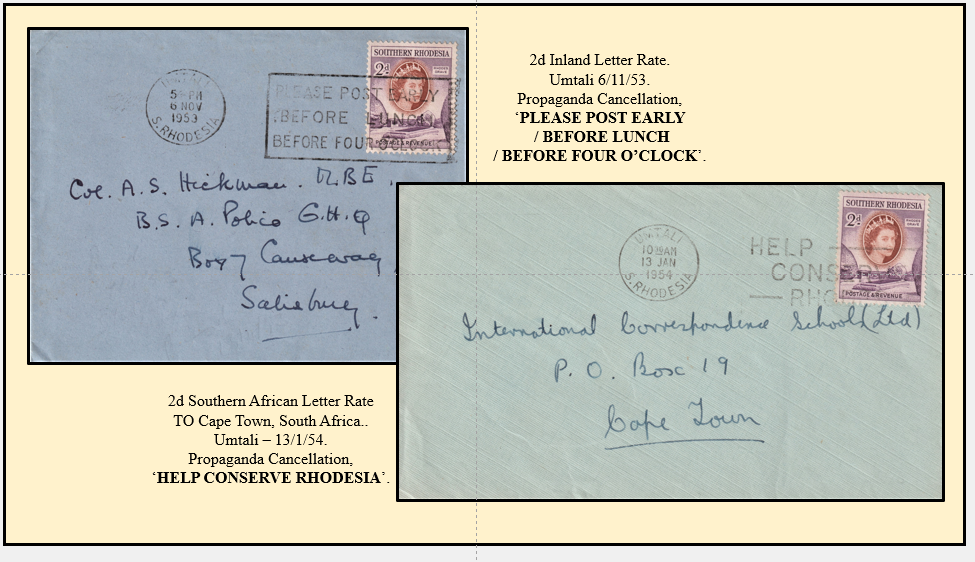 UMTALI
5- PM
6 NOV
1953
S. RHODESIA
PLEASE POST EARLY
BEFORE LUNCH
BEFORE FOUR O'CLOCK
SOUTHERN RHODESIA
2d
POSTAGE & REVENUE
Col. A. S. Hickman. M.B.E.
B.S.A. Police G.H.Q
Box 7 Causeway
Salisbury.
2d Inland Letter Rate.
Umtali 6/11/53.
Propaganda Cancellation,
‘PLEASE POST EARLY
/ BEFORE LUNCH
/ BEFORE FOUR O’CLOCK’.
UMTALI
10 AM
13 JAN
1954
S. RHODESIA
HELP
CONSERVE
RHO
SOUTHERN RHODESIA
2d
POSTAGE & REVENUE
International Correspondence Schools (Ltd)
P. O. Box 19
Cape Town
2d Southern African Letter Rate
TO Cape Town, South Africa..
Umtali – 13/1/54.
Propaganda Cancellation,
‘HELP CONSERVE RHODESIA’.